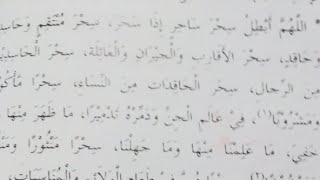 اللَّهُمَّ أَبْطِلْ سِحْرَ سَاحِرٍ إِذَا سَحَرَ، سِحْرَ مُنْتَقِمٍ وَحَاسِدٍ
وَحَاقِدٍ، سِحْرَ الْأَقَارِبِ وَالْجِيرَانِ وَالْعَائِلَةِ، سِحْرَ الْحَاسِدِينَ
مِنَ الرِّجَالِ، سِحْرَ الْحَاقِدَاتِ مِنَ النِّسَاءِ، سِحْرًا مَأْكُولًا
وَمَشْرُوبًا (١)، فِي عَالَمِ الْجِنِّ وَدَمِّرْهُ تَدْمِيرًا، مَا ظَهَرَ مِنْهَا وَمَا
خَفِيَ، مَا عَلِمْنَا مِنْهَا وَمَا جَهِلْنَا، سِحْرًا مَنْثُورًا
وَالْمُنَاسَبَاتِ،